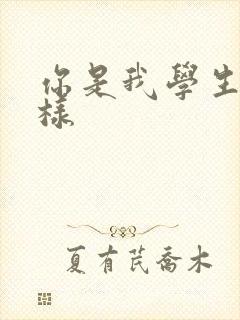 你是我學生
樣
夏有芪喬木